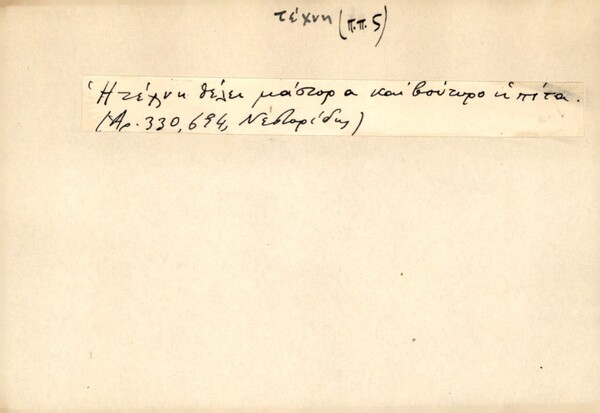 τέχνη (π.π. 5)
Ἡ τέχνη θέλει μάστορα καὶ βούτυρο ἡ πίτα.
(Ἀρ. 330, 694, Νεστορίδης)